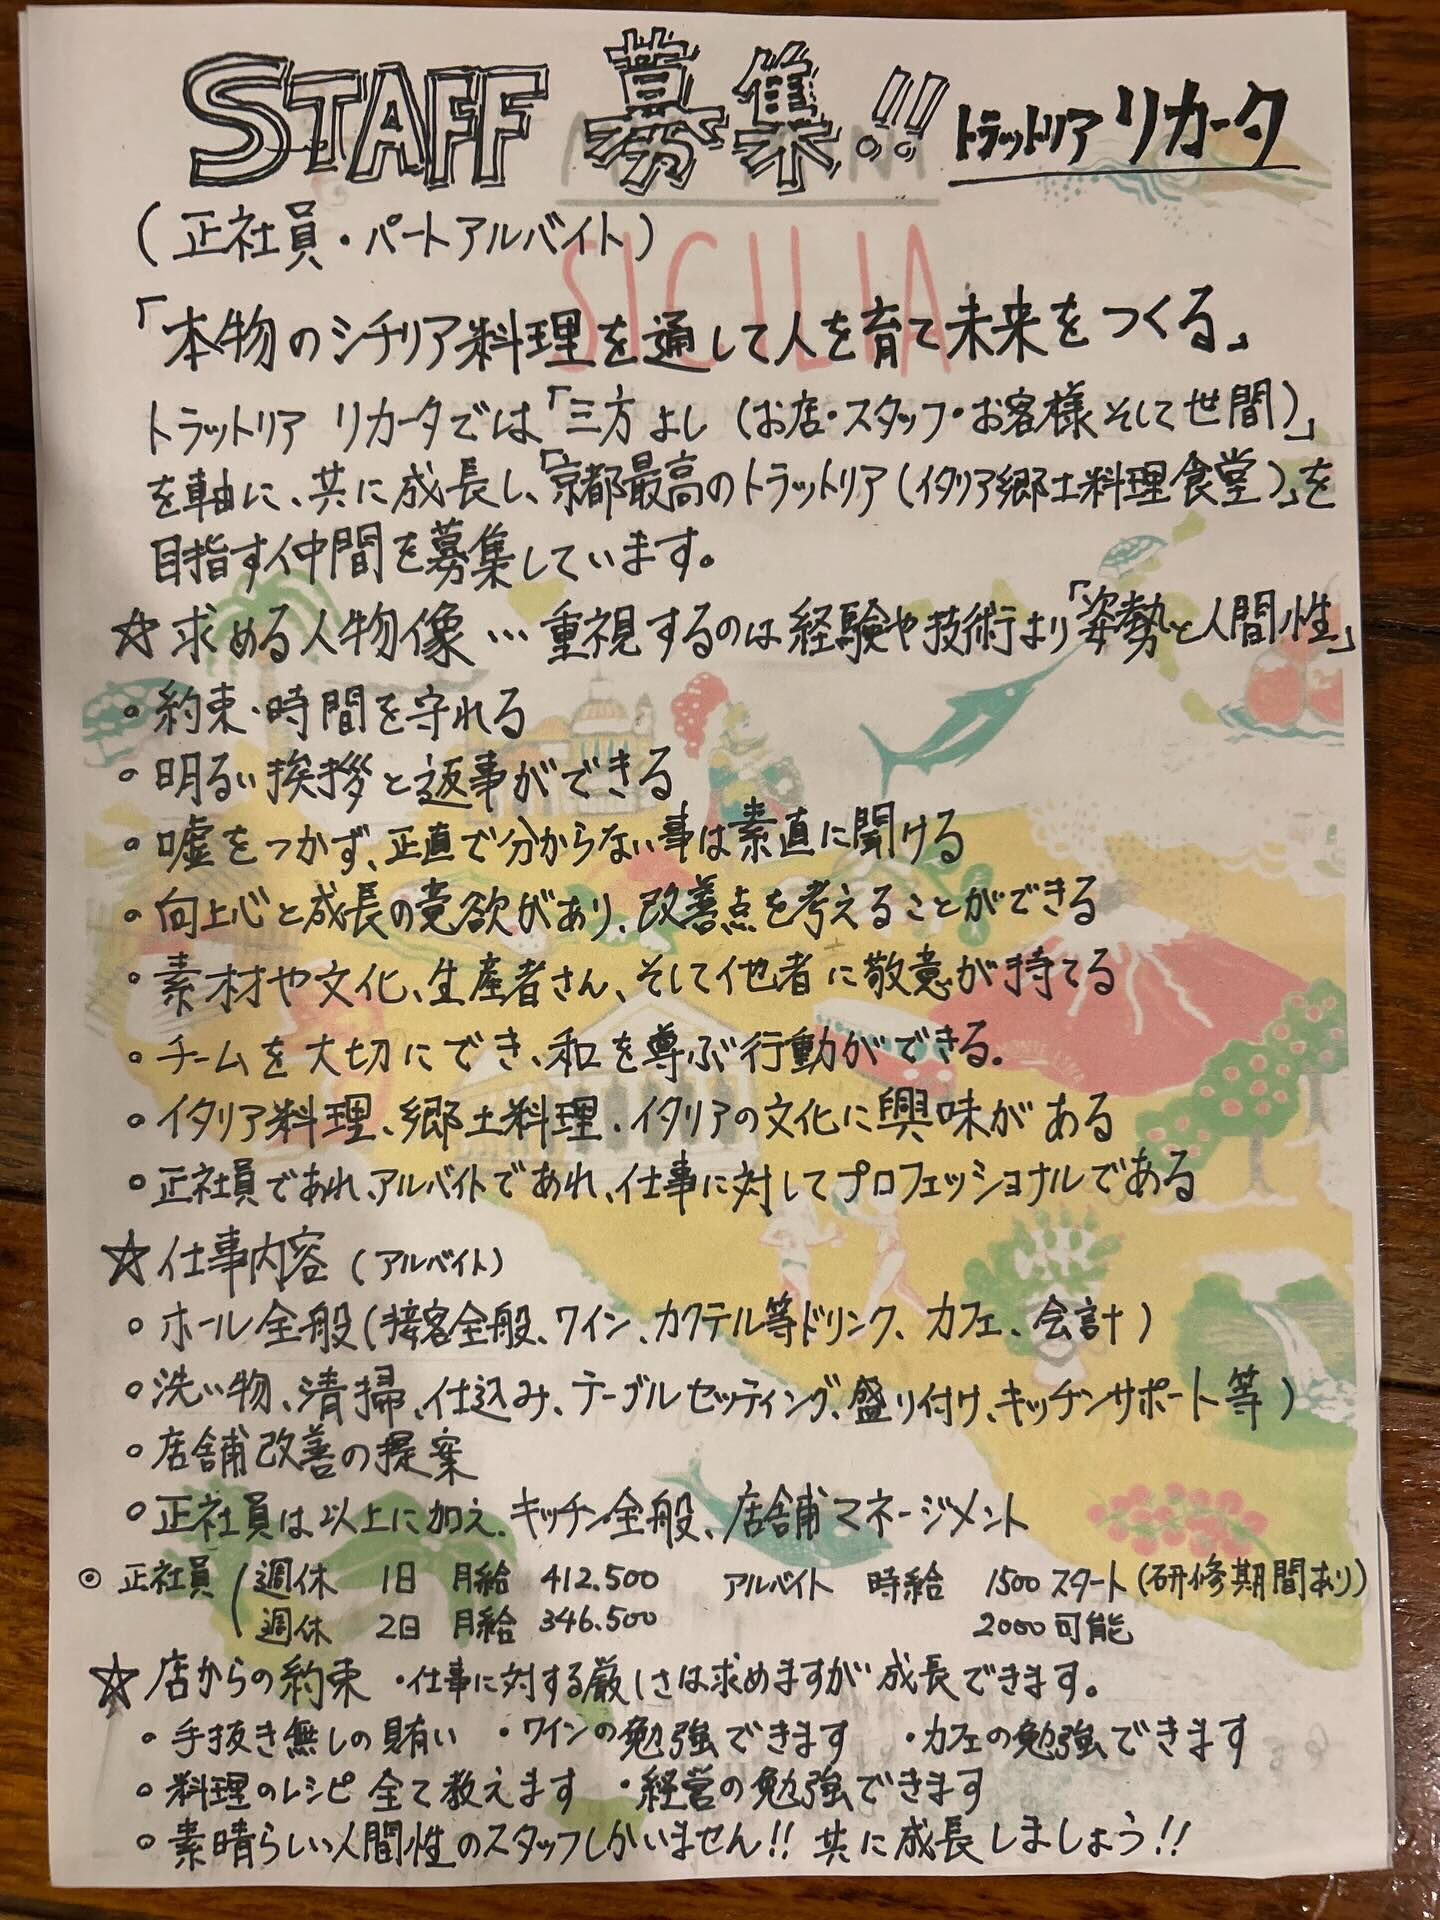 STAFF 募集!! トラットリア リカータ
(正社員・パートアルバイト)
SICILIA
「本物のシチリア料理を通して人を育て未来をつくる」
トラットリア リカータでは「三方よし (お店・スタッフ・お客様そして世間)」
を軸に、共に成長し、「京都最高のトラットリア(イタリア郷土料理食堂)」を
目指す仲間を募集しています。
☆求める人物像…重視するのは経験や技術より「姿勢と人間性」
○約束・時間を守れる
○明るい挨拶と返事ができる
○嘘をつかず、正直で分からない事は素直に聞ける
○向上心と成長の意欲があり、改善点を考えることができる
○素材や文化、生産者さん、そして他者に敬意が持てる
○チームを大切にでき、和を尊ぶ行動ができる.
○イタリア料理、郷土料理、イタリアの文化に興味がある
○正社員であれ、アルバイトであれ、仕事に対してプロフェッショナルである
☆仕事内容 (アルバイト)
○ホール全般(接客全般、ワイン、カクテル等ドリンク、カフェ、会計)
○洗い物、清掃、仕込み、テーブルセッティング、盛り付け、キッチンサポート等)
○店舗改善の提案
○正社員は以上に加え、キッチン全般、店舗マネージメント
◎ 正社員 (週休 1日 月給 412.500 アルバイト 時給 1500スタート(研修期間あり)
週休 2日 月給 346.500 2000可能
☆店からの約束 ・仕事に対する厳しさは求めますが成長できます。
○手抜き無しの賄い ・ワインの勉強できます ・カフェの勉強できます
○料理のレシピ全て教えます ・経営の勉強できます
○素晴らしい人間性のスタッフしかいません!! 共に成長しましょう!!